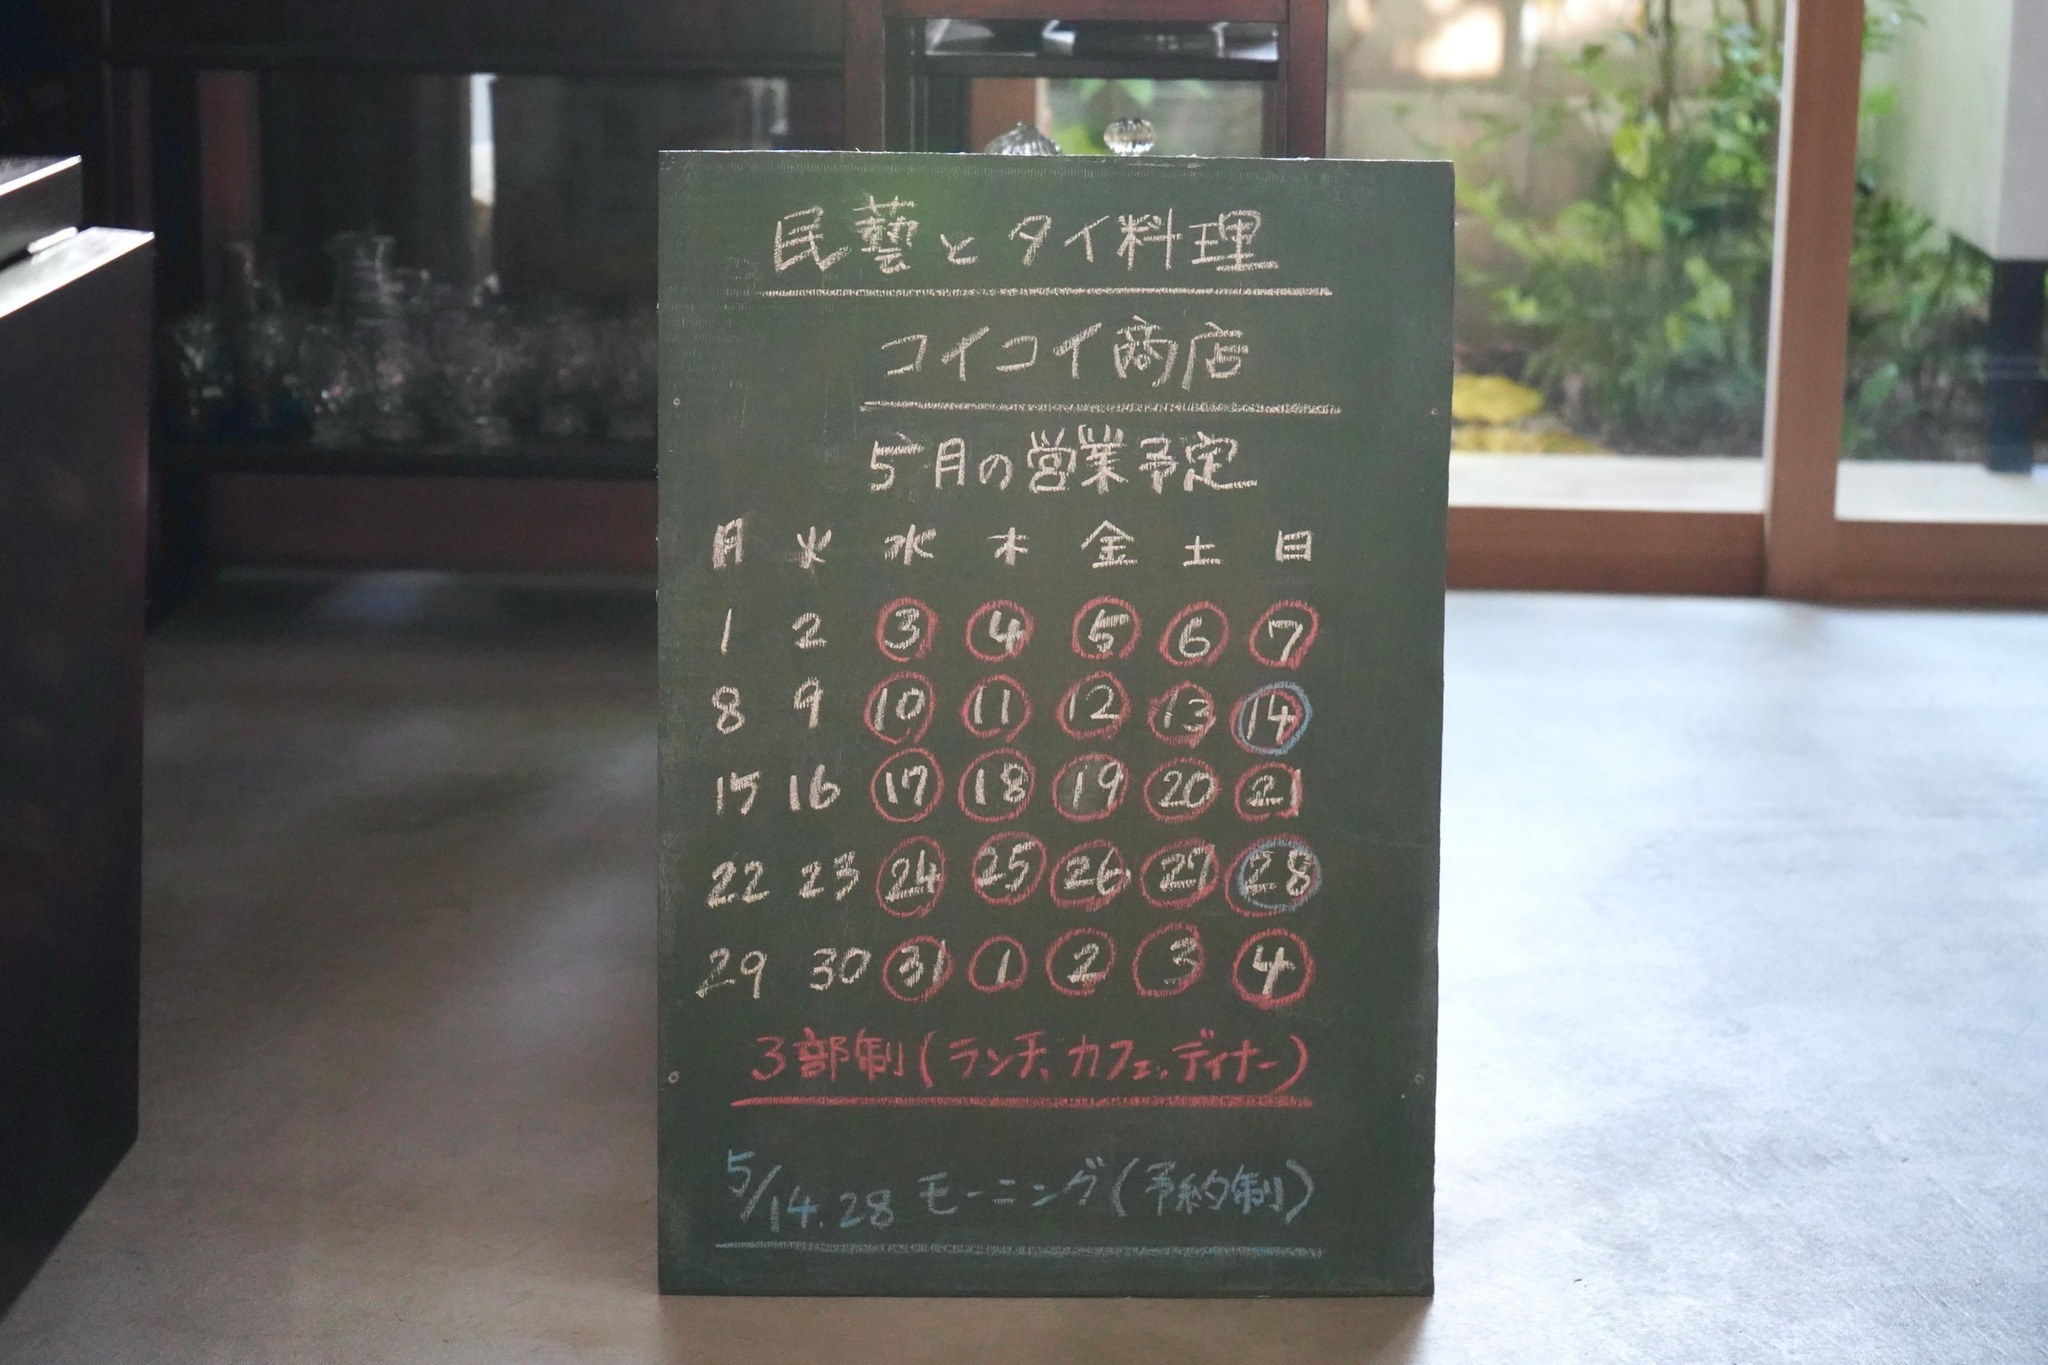 民藝とタイ料理
コイコイ商店
5月の営業予定
月 火 水 木 金 土 日
1 2 3 4 5 6 7
8 9 10 11 12 13 14
15 16 17 18 19 20 21
22 23 24 25 26 27 28
29 30 31 1 2 3 4
3部制(ランチ、カフェ、ディナー)
5/14.28 モーニング(予約制)